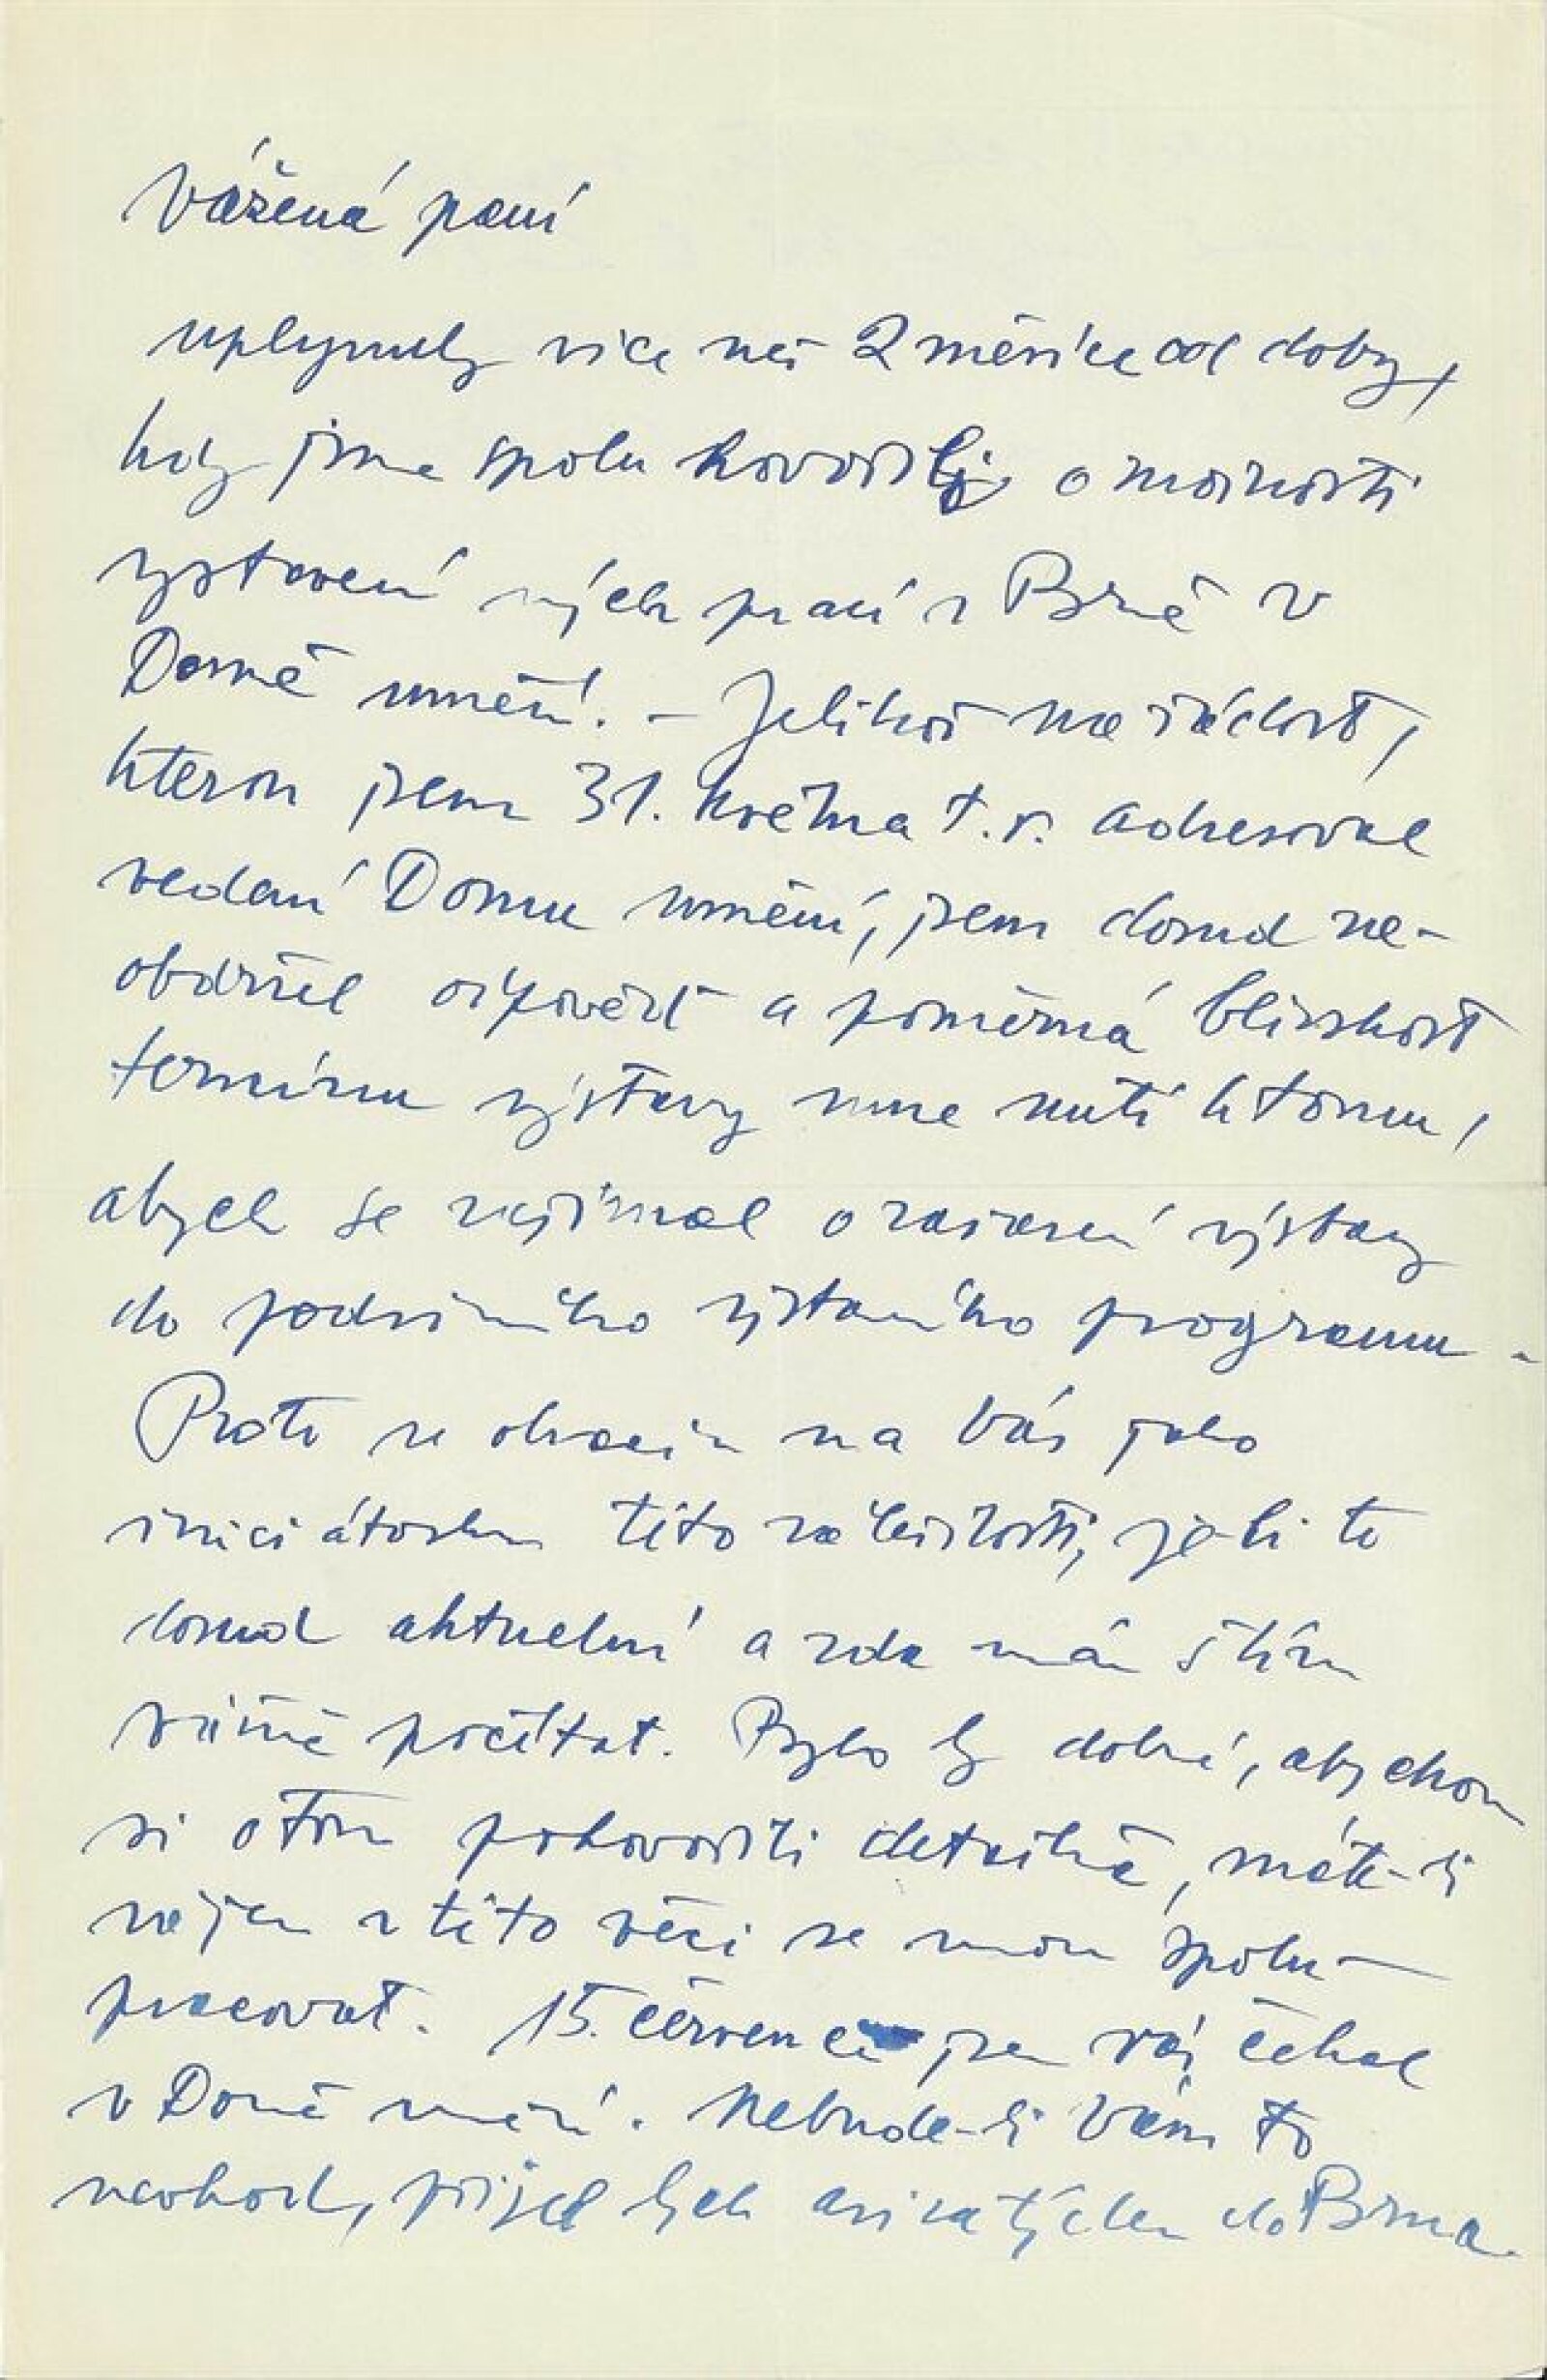 Vážená paní
uplynuly více než 2 měsíce od doby,
kdy jsme spolu hovořily o možnosti
vystavení mých prací v Brně v
Domě umění. – Jelikož na žádost,
kterou jsem 31. května t.r. adresoval
vedení Domu umění, jsem dosud ne-
obdržel odpověď a poměrná blízkost
termínu výstavy mne nutí k tomu,
abych se zajímal o zařazení výstavy
do podzimního výstavního programu.
Proto se obracím na Vás jako
iniciátorku této záležitosti, je-li to
dosud aktuelní a zda mám s tím
vážně počítat. Bylo by dobré, abychom
si o tom pohovořili detailně, máte-li
zájem v této věci se mnou spolu-
pracovat. 15. července jsem Vás čekal
v Domě umění. Nebude-li Vám to
nevhod, přijel bych asi za týden do Brna.